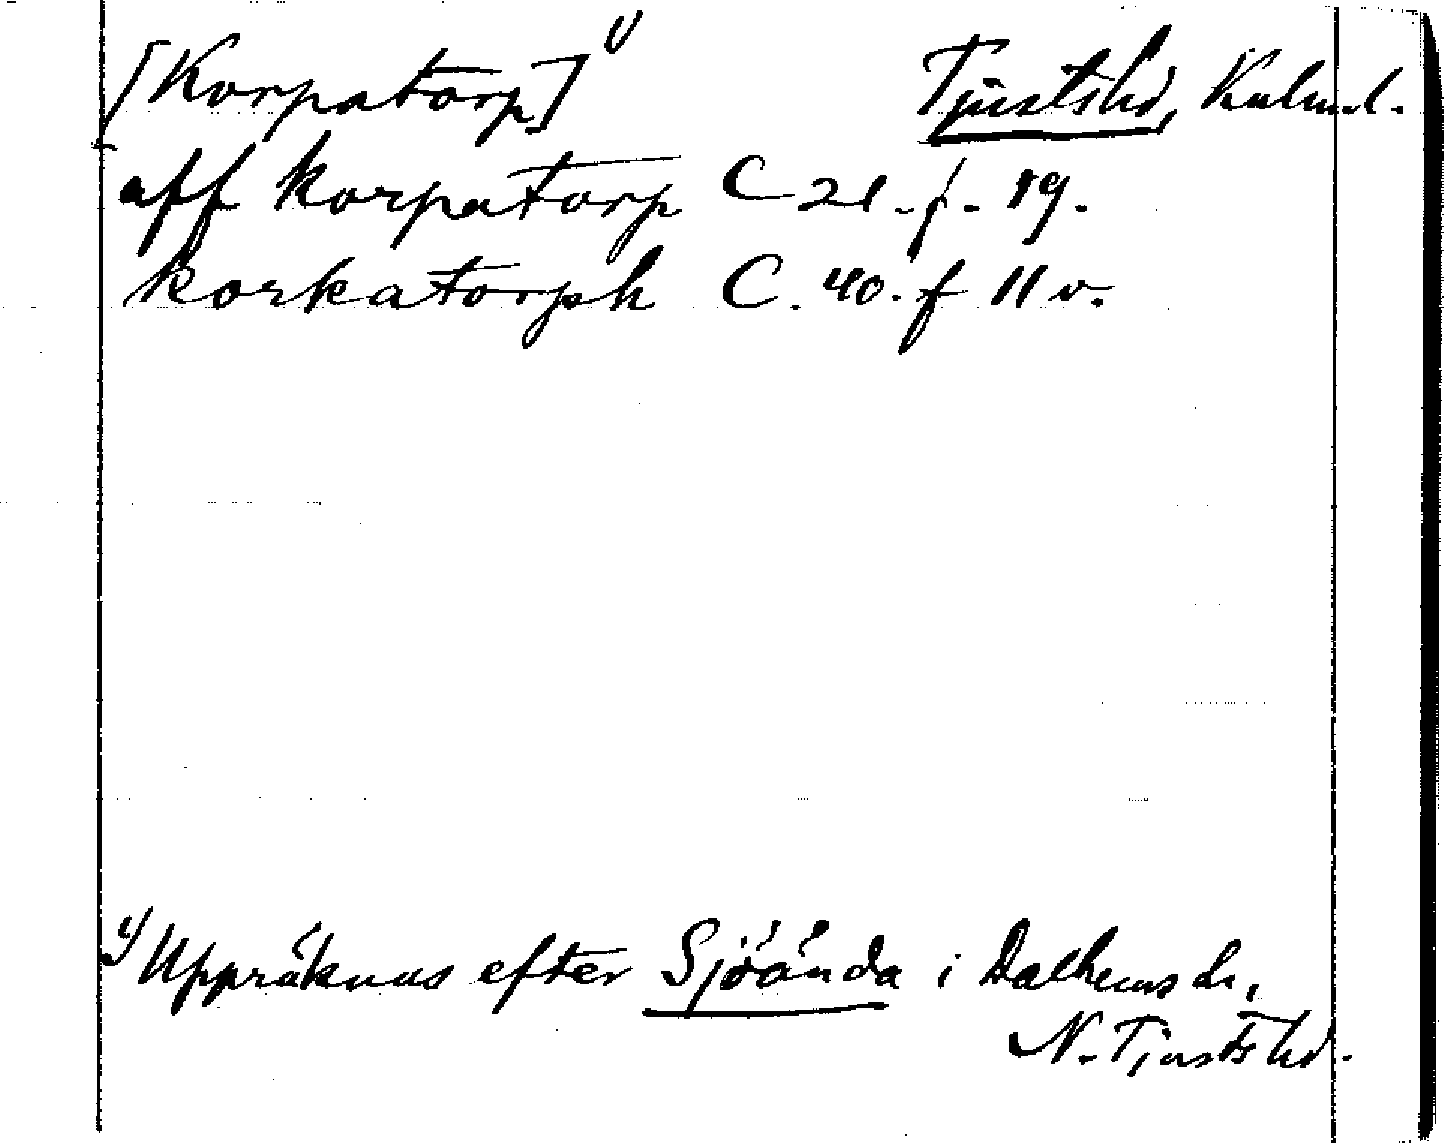 [Korpatorp] 1) Tjustshd, Kalm. l.
aff korpatorp C 21. f. 19.
korkatorph C. 40. f 11 v.
1) Uppräknas efter Sjöända i Dalhems sn,
N. Tjusts hd.